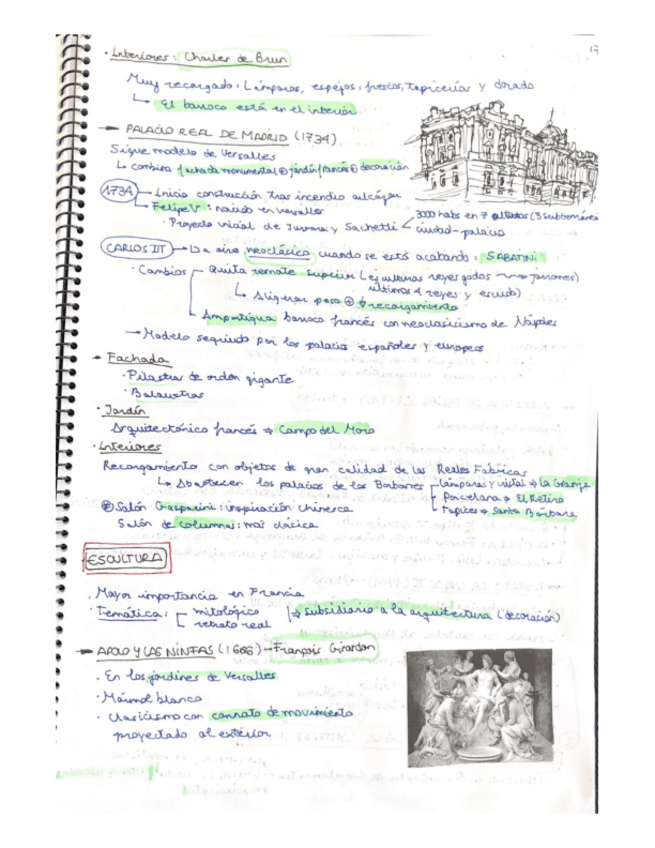 17
· Interiores: Charles de Brun
Muy recargado: Lámparas, espejos, frescos, tapicerías y dorado
↳ El barroco está en el interior
→ PALACIO REAL DE MADRID (1734)
Sigue modelo de Versalles
↳ combina fachada monumental ⊕ jardín francés ⊕ decoración
1734 Inicio construcción tras incendio alcázar
Felipe V: nacido en versalles
· Proyecto inicial de Juvara y Sachetti
3000 habs en 7 (3 subterráneas)
ciudad-palacio
CARLOS III → La aire neoclásico cuando se está acabando: SABATINI
· Cambios Quita remate superior (esculturas reyes godos → jarrones)
últimos 4 reyes y escudo)
↳ Aligerar peso ⊕ ↓ recargamiento
Amortigua barroco francés con neoclasicismo de Nápoles
→ Modelo seguido por los palacios españoles y europeos
→ Fachada
· Pilastras de orden gigante
· Balaustras
· Jardín
Arquitectónico francés ⇒ Campo del Moro
· Interiores
Recargamiento con objetos de gran calidad de las Reales Fábricas
↳ Abastecen los palacios de los Borbones
lámparas y cristal ⇒ la Granja
Porcelana ⇒ El Retiro
Tapices ⇒ Santa Bárbara
Salón Gasparini: inspiración chinesca
Salón de columnas: más clásica
ESCULTURA
· Mayor importancia en Francia
· Temática: mitológico
retrato real
⇒ subsidiario a la arquitectura (decoración)
→ APOLO Y LAS NINFAS (1666) – François Girardon
· En los jardines de Versalles
· Mármol blanco
· Clasicismo con conato de movimiento
proyectado al exterior